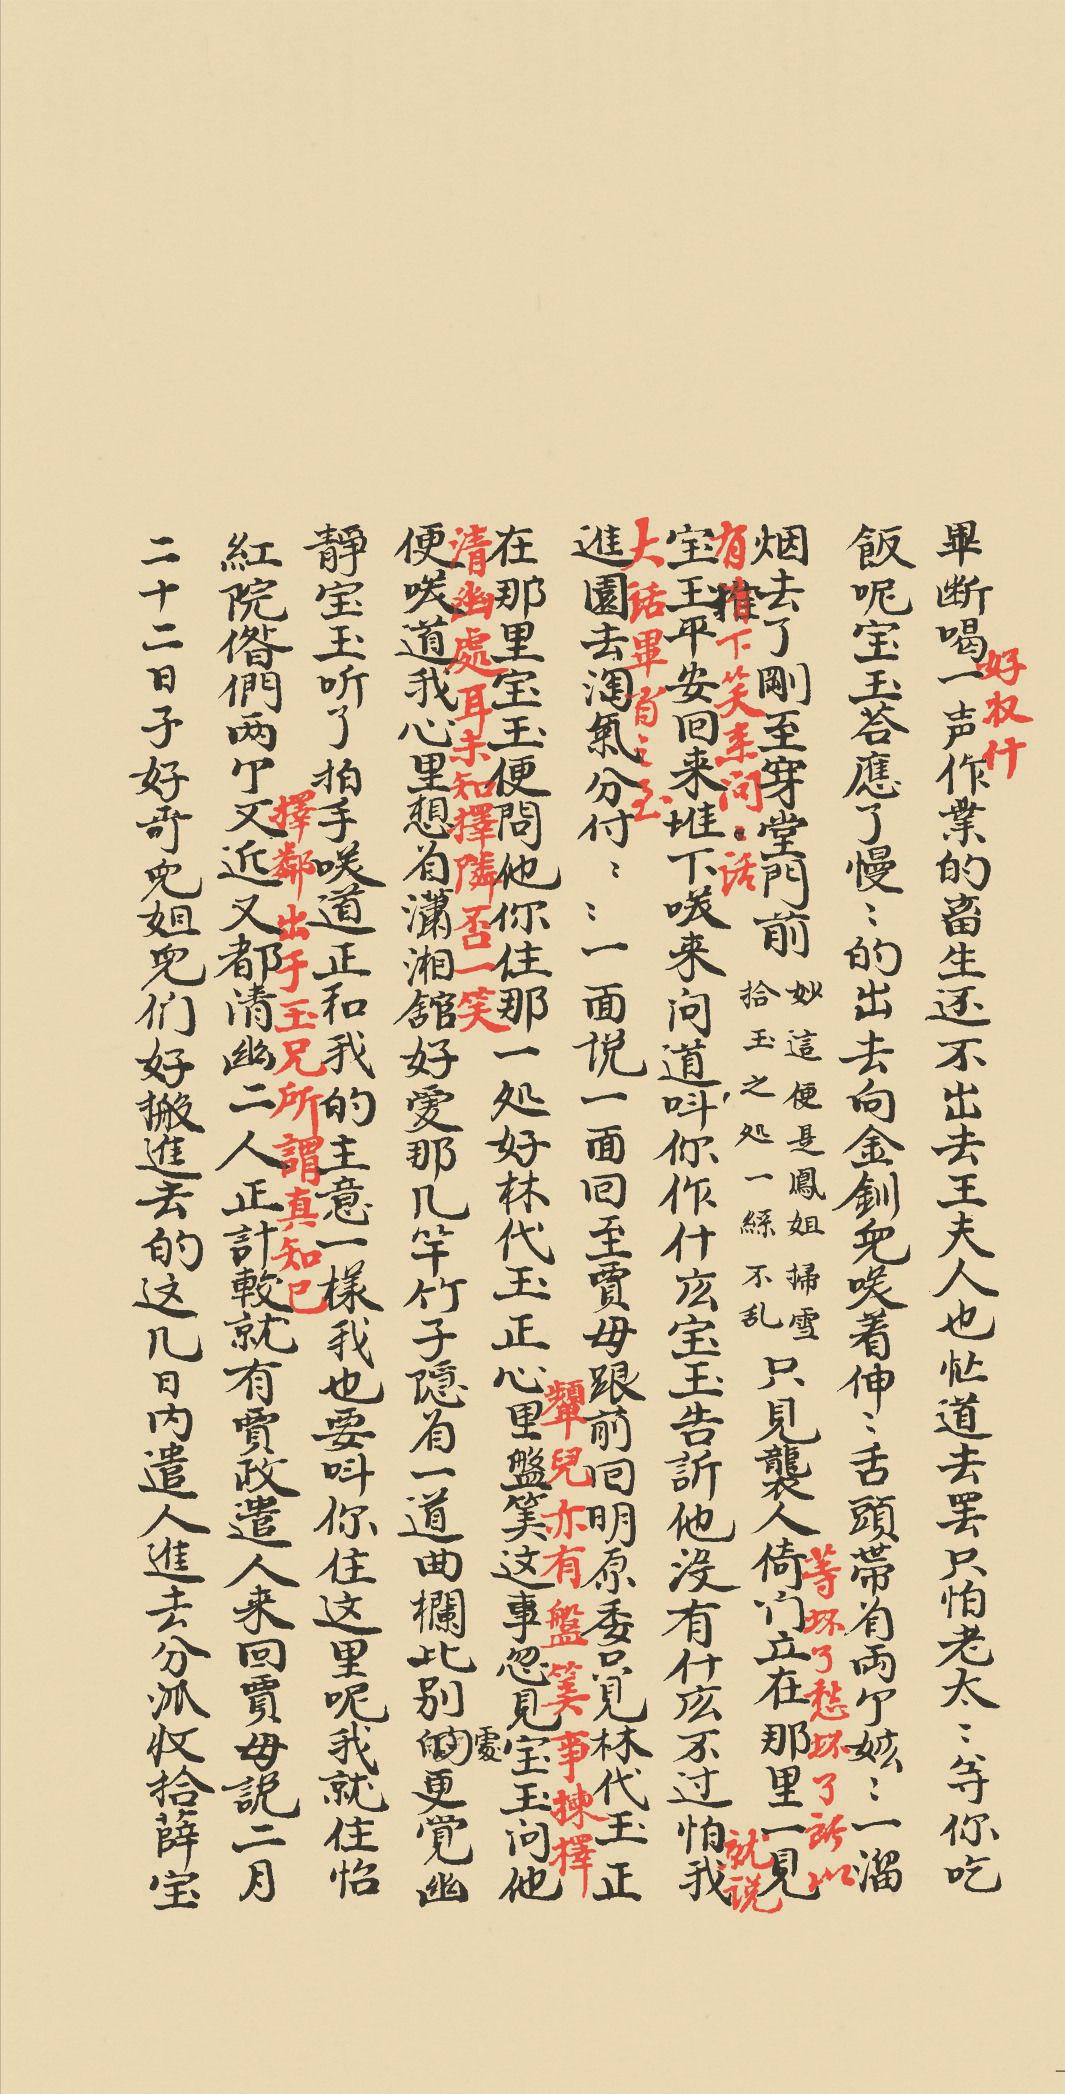 畢断喝一声作業的畜生还不出去王夫人也忙道去罢只怕老太〻等你吃
好收什
飯呢宝玉答應了慢〻的出去向金釧兒咲着伸〻舌頭带着両个嫉〻一溜
烟去了剛至穿堂門前
妙這便是鳳姐掃雪
拾玉之処一絲不乱
只見襲人倚门立在那里一見
等坏了愁坏了所以
有堆下笑来问〻话
就说
宝玉平安回来堆下咲来问道呌你作什広宝玉告訴他没有什広不过怕我
大话畢肖之至
進園去淘氣分付〻〻一面说一面回至賈母跟前回明原委只见林代玉正
顰兒亦有盤筭事揀擇
清幽處耳未知擇隣否一笑
在那里宝玉便問他你住那一処好林代玉正心里盤筭这事忽見宝玉问他
便咲道我心里想着瀟湘舘好愛那几竿竹子隱着一道曲欄比别的處更覚幽
靜宝玉听了拍手咲道正和我的主意一樣我也要呌你住这里呢我就住怡
擇鄰出于玉兄所謂真知己
紅院偺們両个又近又都清幽二人正計較就有賈政遣人来回賈母説二月
二十二日子好哥兒姐兒们好搬進去的这几日内遣人進去分派收拾薛宝